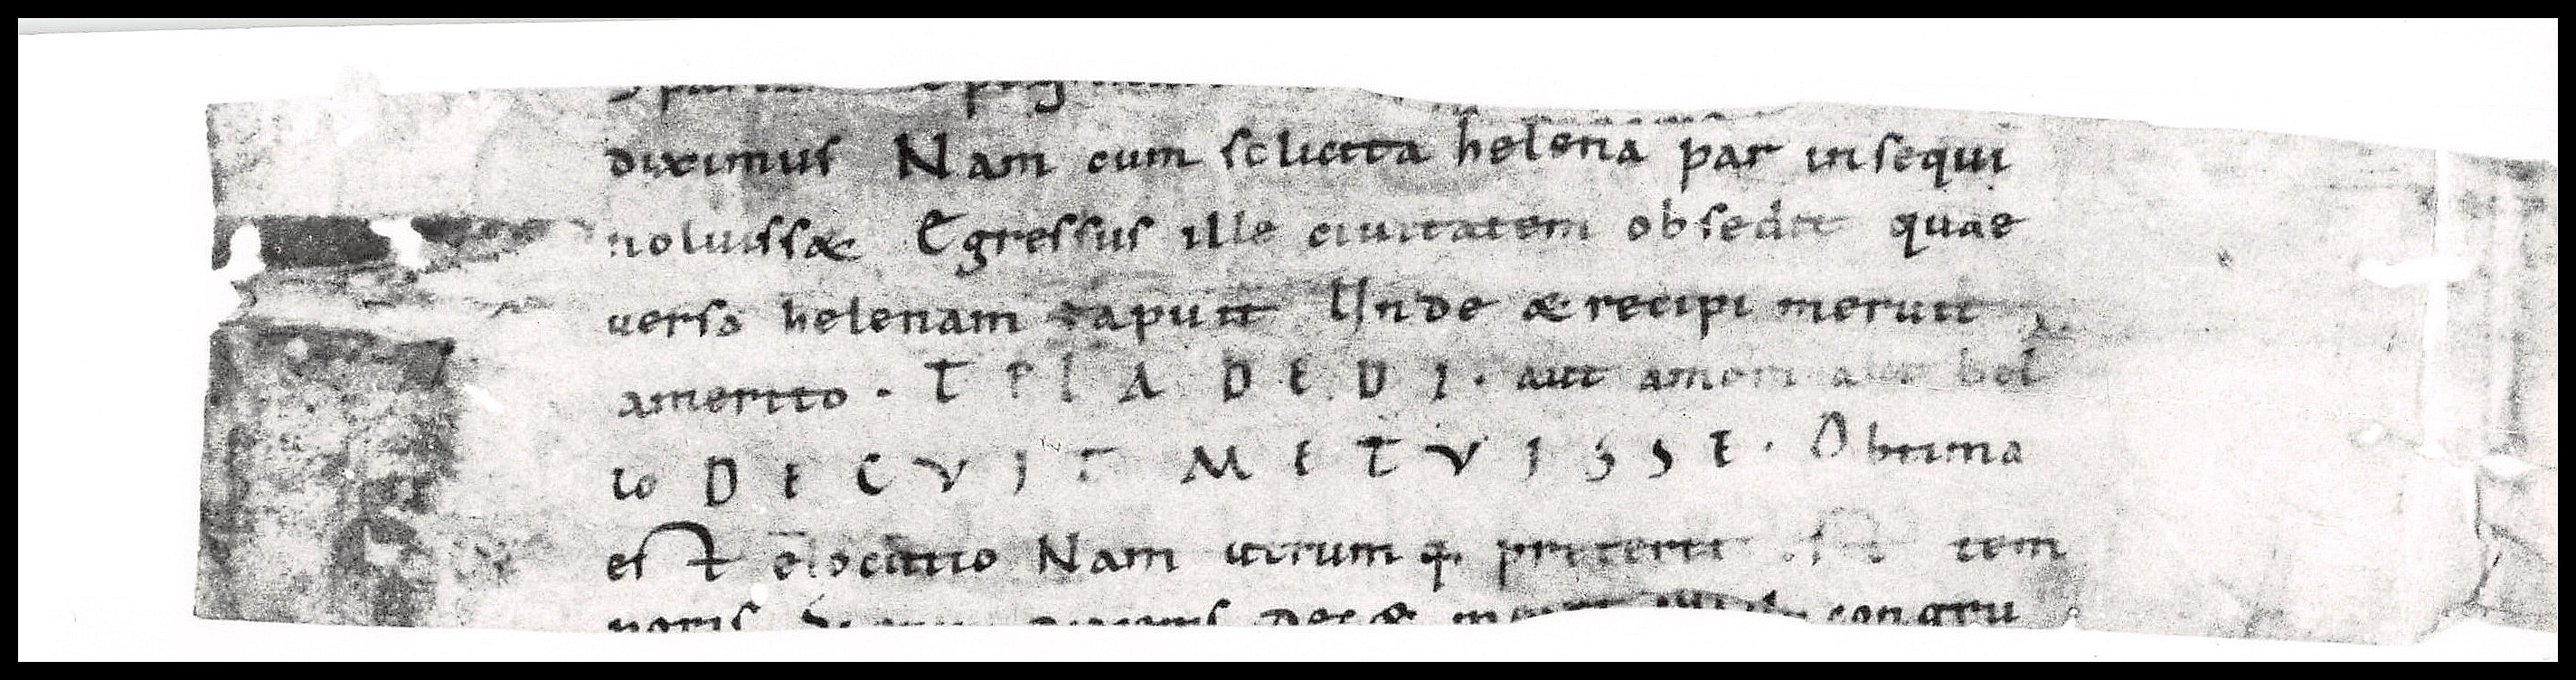 diximus Nam cum sclicita helena par insequi
noluissæ Egressus ille ciuitatem obsedit quae
uerso helenam rapuit Unde æ recipi meruit
amerito . T P L A D E D I . aut amori aut bel
lo D E C V I T M E T V I S S E . Obtima
est elocutio Nam utrumq. preteriti est tem
poris